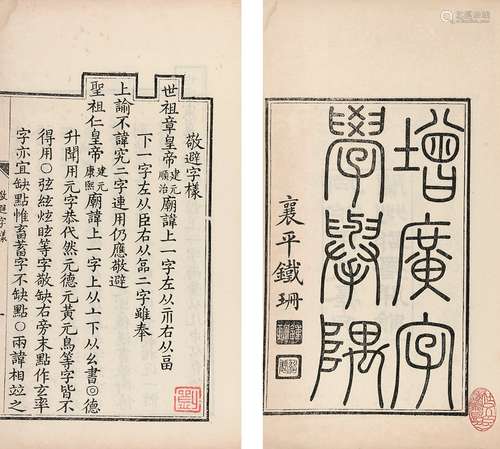 增廣字
學舉隅
襄平鐵珊
敬避字樣
世祖章皇帝建元順治廟諱上一字左从示右从畐
下一字左从臣右从二字雖奉
上諭不諱究二字連用仍應敬避
聖祖仁皇帝建元康熙廟諱上一字上从亠下从幺書◎德
升聞用元字恭代然元德元黃元鳥等字皆不
得用○弦絃炫眩等字敬缺右旁末點作玄率
字亦宜缺點惟畜蓄字不缺點○兩諱相竝之
敬避字樣
一